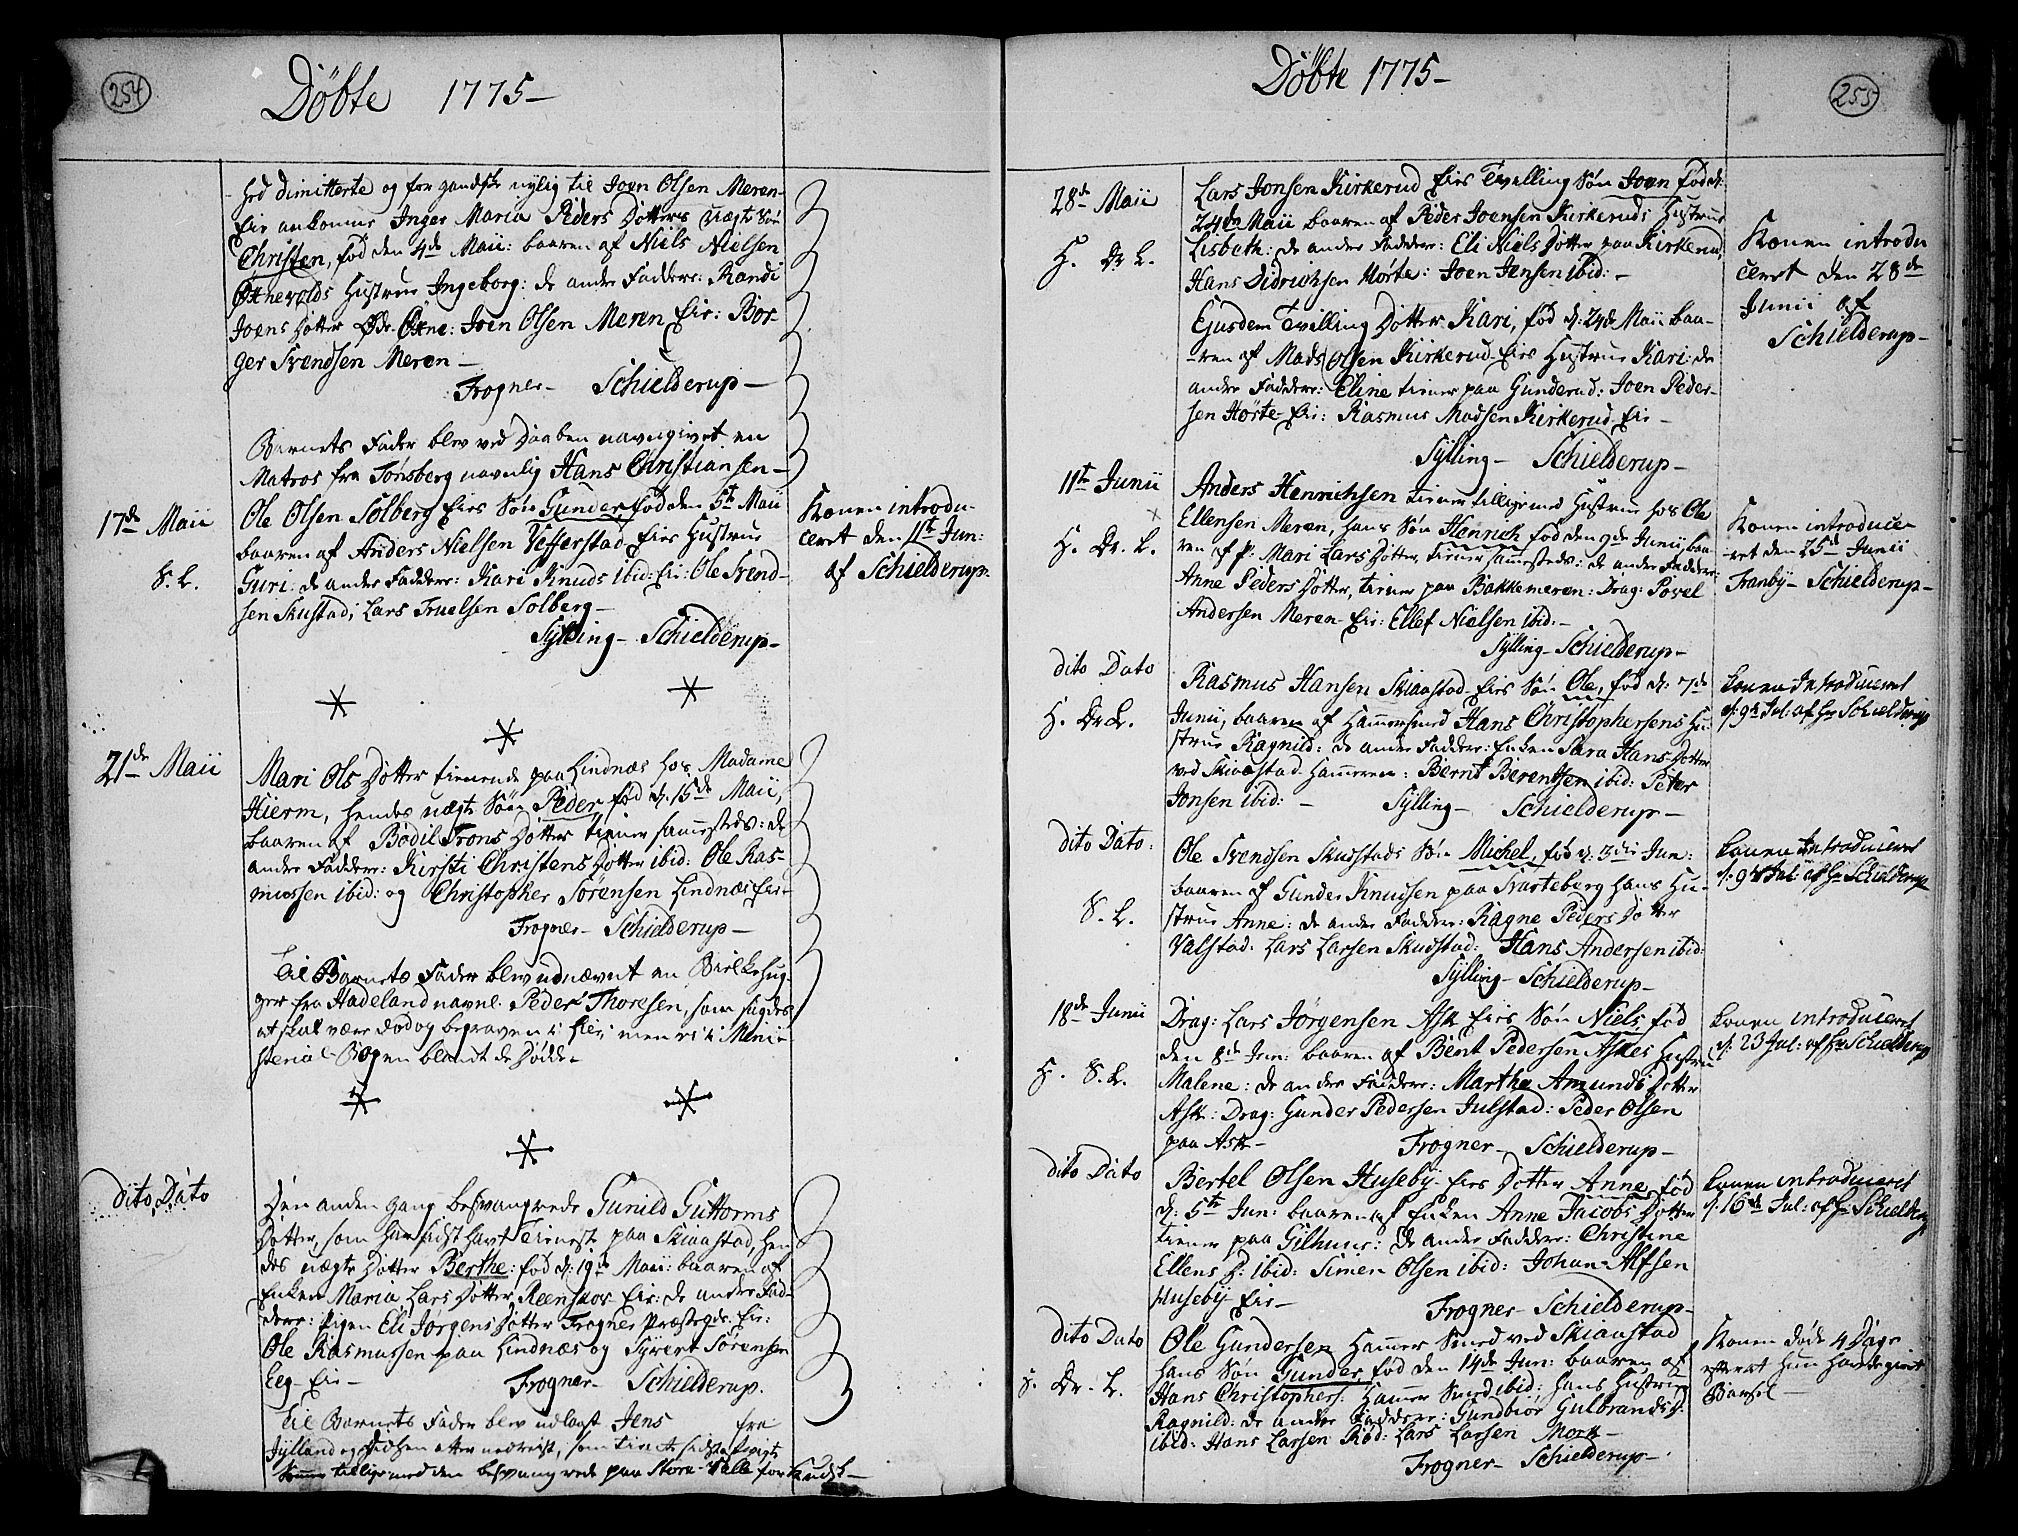 254
Döbte 1775-
hed dimitterte og for gandske nylig til Joen Olsen Meren-
Eie ankomne Inger Maria Peders Dotters uægte Søn
Christen, fød den 4de Maii: baaren af Niels Nielsen
Oxnevolds Hustrue Ingeborg: de andre Faddere: Randi
Joens Dotter Øde Oxne: Joen Olsen Meren Eie: Bor-
ger Svendsen Meren-
Frogner- Schielderup-
Barnets Fader blev ved Daaben navngivet en
Matros fra Tonsberg navnlig Hans Christiansen-
17de Maii
S. L.
Ole Olsen Solberg Eies Søn Gunder, fød den 5te Maii
baaren af Anders Nielsen Vefferstad Eies Hustrue
Guri: de andre Faddere: Kari Knuds ibid: Eie: Ole Svend-
sen Skustad; Lars Truelsen Solberg-
Sylling- Schielderup-
Konen introdu-
ceret den 11te Jun:
af Schielderup.
21de Maii
Mari Ols Dotter tienende paa Lindnæs hos Madame
Hierm, hendes uægte Søn Peder fød d. 15de Maii,
baaren af Bodil Trons Dotter tiener sammesteds: de
andre Faddere: Kirsti Christens Dotter ibid: Ole Ras-
mussen ibid: og Christopher Sörensen Lindnæs Eie-
Frogner- Schielderup-
Til Barnets Fader blev udnævnt en Birkehug-
ger fra Hadeland navnl. Peder Thoresen, som sigdes
at skal være død og begraven i Lier; men ei i Mini-
sterial-Bogen blandt de Døde.
dito Dato
Den anden gang besvangrede Gunild Guttorms
Dotter, som har sidst havt Tieneste paa Skiaastad, hen
des uægte Dotter Berthe: fød d. 19de Maii: baaren af
Enken Maria Lars Dotter Reenskov Eie: de andre Fad-
dere: Pigen Eli Jorgens Dotter Frogner Præstegd: Eie:
Ole Rasmussen paa Lindnæs og Syvert Sörensen
Eeg- Eie-
Frogner- Schielderup.
Til Barnets Fader blev udlagt Jens fra
Jylland og siden efter udreist, som tiente sidstafvigte
Sommer tillige med den besvangrede paa Store-Valle for
255
Döbte 1775-
28de Maii
H. Dr. L.
Lars Jonsen Kirkerud Eies Tvilling Søn Joen fød d.
24de Maii baaren af Peder Joensen Kirkeruds Hustrue
Lisbeth: de andre Faddere: Eli Niels Dotter paa Kirkerud,
Hans Didrichsen Hörte: Joen Jensen ibid:-
Ejusdem Tvilling Dotter Kari, fød d: 24de Maii baa-
ren af Mads Olsen Kirkerud Eies Hustrue Kari: de
andre Faddere: Eline tiener paa Gunderud: Joen Peder-
sen Hörte- Eie: Rasmus Madsen Kirkerud Eie-
Sylling- Schielderup-
Konen introdu
ceret den 28de
Junii af
Schielderup-
11te Junii
H. Dr. L.
Anders Henrichsen tiener tillige med Hustrue hos Ole
Ellensen Meren, hans Søn Henrich fød den 9de Junii baa-
ren af P: Mari Lars Dotter, tiener sammesteds: de andre Faddere:
Anne Peders Dotter, tiener paa Bakkemeren: Drag: Povel
Andersen Meren- Eie: Ellef Nielsen ibid:-
Sylling- Schielderup-
Konen introduce-
ret den 25de Junii
Tranby- Schielderup-
dito Dato
H. Dr. L.
Rasmus Hansen Skiaastad- Eies Søn Ole, fød d: 7de
Junii, baaren af Hammersmed Hans Christophersens Hu-
strue Ragnild: de andre Faddere: Enken Sara Hans Dotter
ved Skiaastad Hammeren: Bernt Berentsen ibid: Peter
Jonsen ibid:- Sylling- Schielderup-
Konen Introduceret
d: 9de Jul: af Hr Schielderup
dito Dato.
S. L.
Ole Svendsen Skudstads Søn Michel, fød d. 3die Jun:
baaren af Gunder Knudsen paa Svarteberg hans Hu-
strue Anne: de andre Faddere: Ragne Peders Dotter
Valstad: Lars Larsen Skudstad: Hans Andersen ibid:
Sylling- Schielderup-
Konen Introduceret
d: 9de Jul: af Hr Schielderup
18de Junii
H. S. L.
Drag: Lars Jörgensen Ask Eies Søn Niels fød
den 8de Jun: baaren af Bent Pedersen Askes Hustrue
Malene: de andre Faddere: Marthe Amunds Dotter
Ask: Drag: Gunder Pedersen Julstad: Peder Olsen
paa Ask- Frogner- Schielderup-
Konen introduceret
d: 23 Jul: af Hr Schielderup
dito Dato
Bertel Olsen Huseby- Eies Dotter Anne, fød
d: 5te Jun: baaren af Enken Anne Jacobs Dotter
tiener paa Gilhuus: de andre Faddere: Christine
Ellens D: ibid: Simen Olsen ibid: Johan Alfsen
Huseby Eie- Frogner- Schielderup-
Konen introduceret
d: 16de Jul: af Hr Schielderup
dito Dato
S. Dr. L.
Ole Gundersen Hammer Smed ved Skiaastad
hans Søn Gunder, fød den 14de Jun: baaren af
Hans Christophers: Hammer Smed ibid: hans Hustrue
Ragnild: de andre Faddere: Gundbior Gulbrands D:
ibid: Hans Larsen Rød: Lars Larsen Mork-
Frogner- Schielderup-
Konen døde 4 Dage
efterat hun havde giort
Barsel-